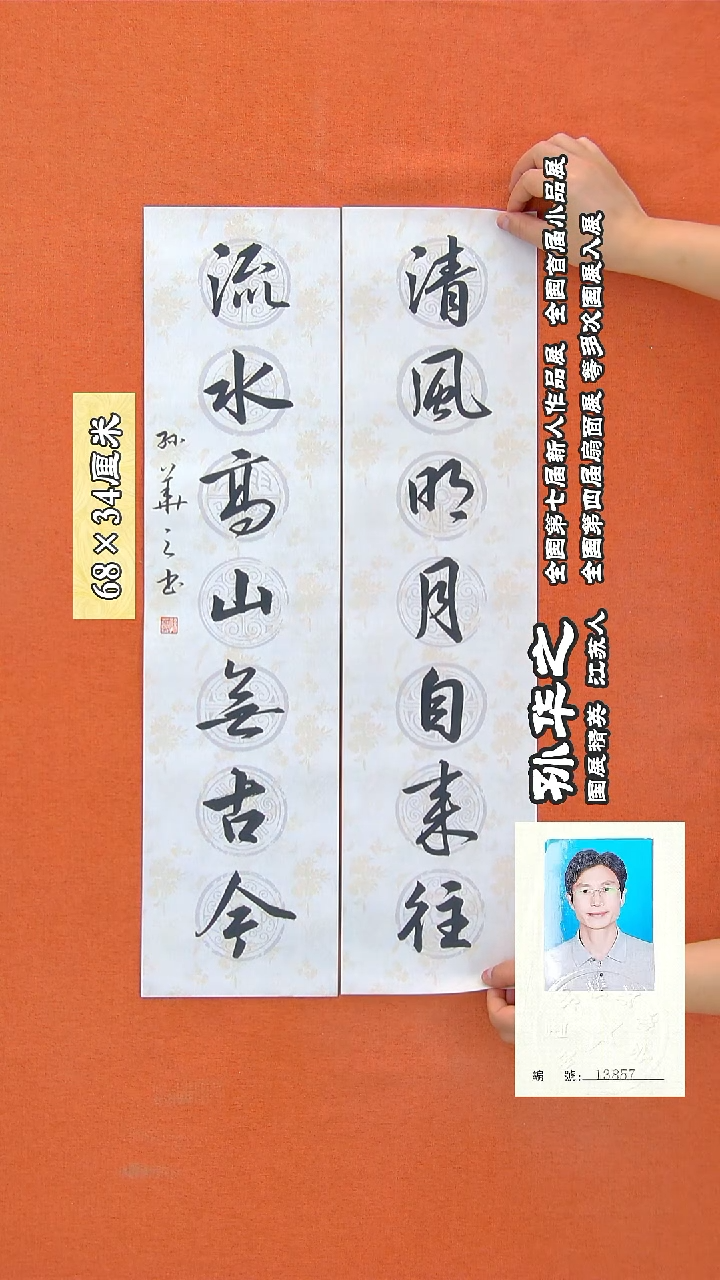 清風明月自来往
流水高山無古今
孙華之书
68×34厘米
全国第七届新人作品展 全国首届小品展
全国第四届扇面展 等多次国展入展
孙华之
国展精英 江苏人
編 號: 13857